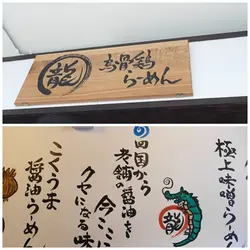 龍
烏骨鶏
らーめん
極上味噌らーめ
龍
四国から
老舗の醤油を
今ここに
クセになる味
こくうま
醤油らーめん